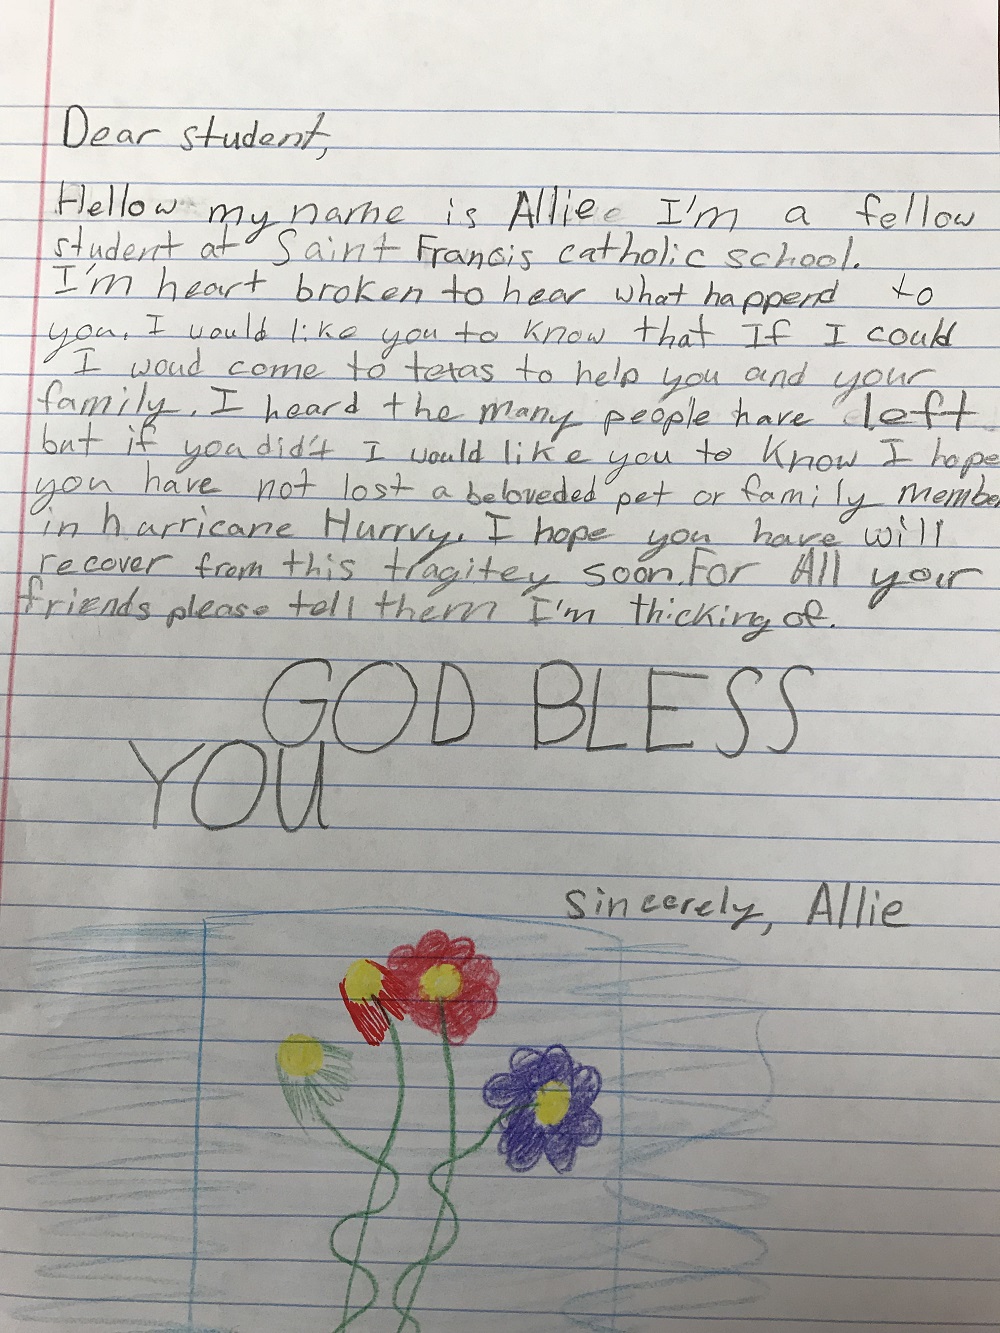 Dear student,
Hellow my name is Allie I'm a fellow
student at Saint Francis catholic school.
I'm heart broken to hear what happend to
you. I would like you to know that If I could
I woud come to tetas to help you and your
family. I heard the many people have left
but if you did't I would like you to know I hope
you have not lost a beloveded pet or family membe
in harricane Hurrvy. I hope you have will
recover from this tragitey soon. For All your
friends please tell them I'm thicking of.
GOD BLESS
YOU
sincerely, Allie